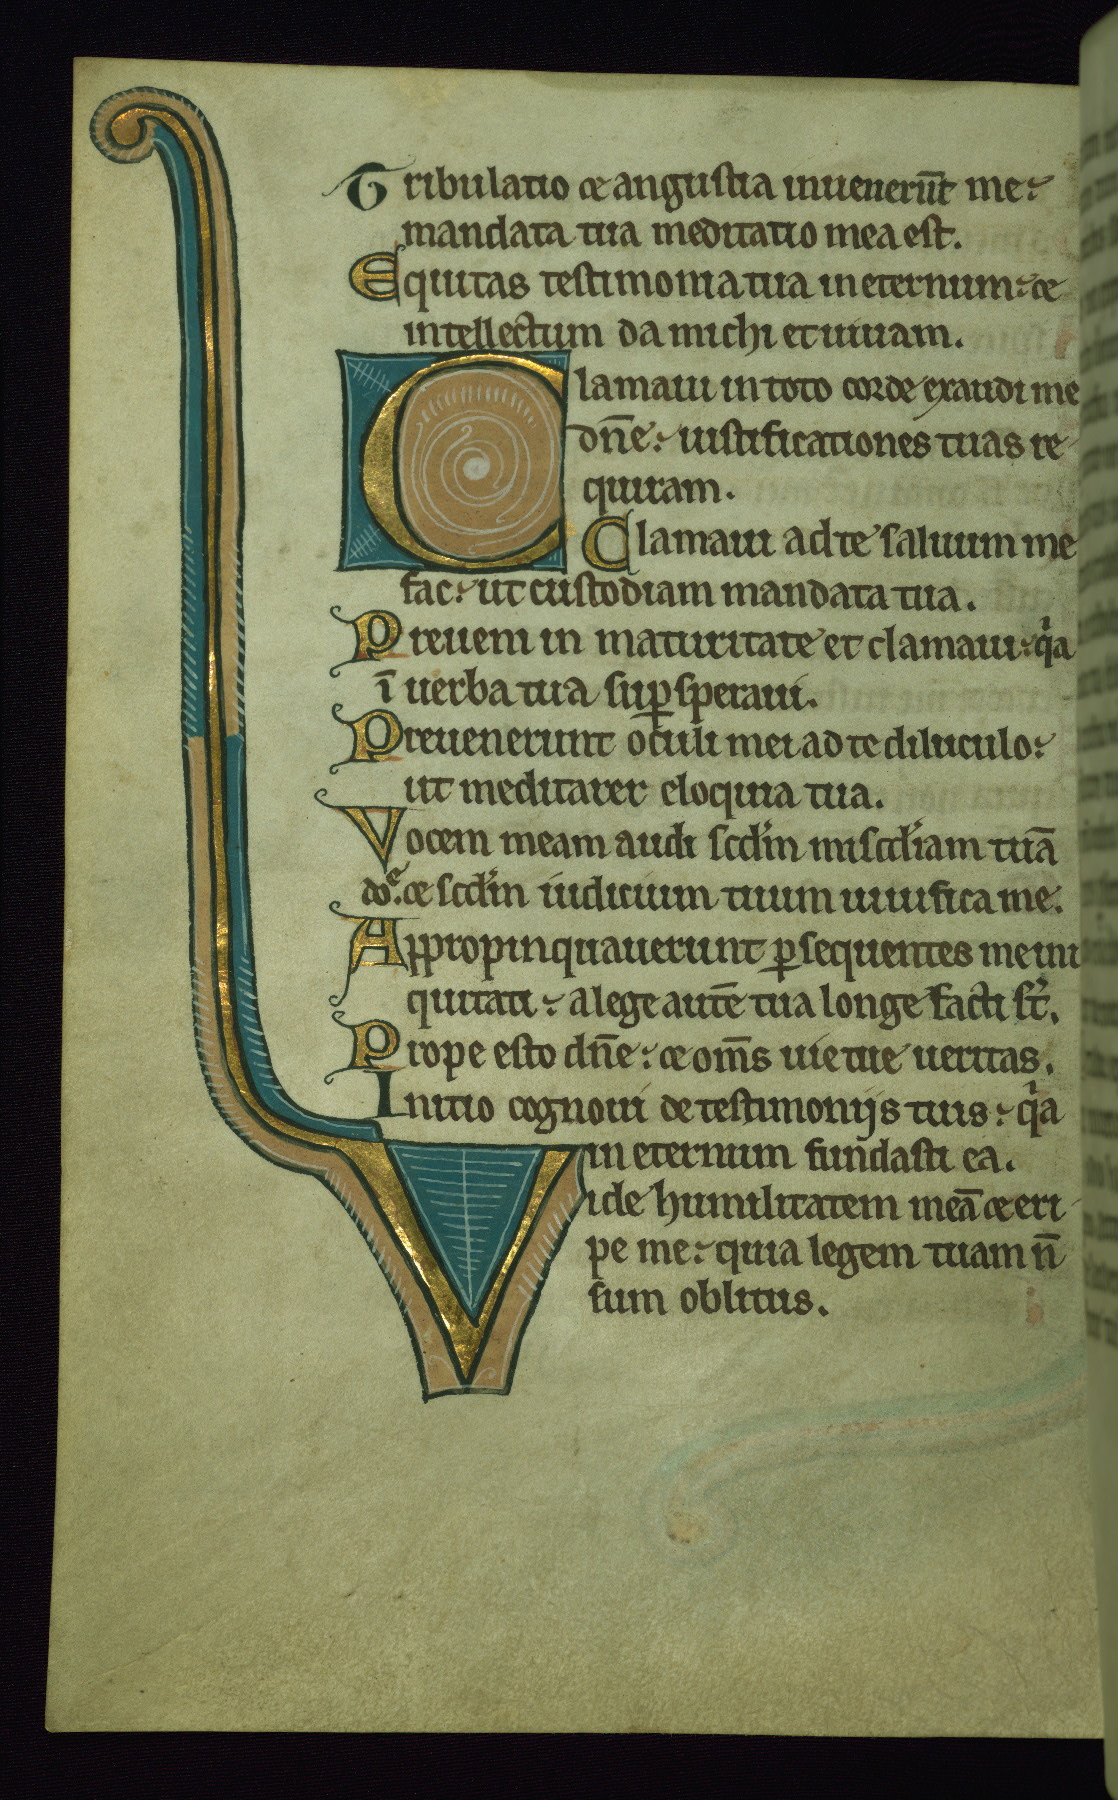 Tribulatio & angustia inueneru̅t me:
mandata tua meditatio mea est.
Equitas testimonia tua in eternum: &
intellectum da michi et uiuam.
Clamaui in toto corde exaudi me
dn̅e: iustificationes tuas re
quiram.
Clamaui ad te saluum me
fac: ut custodiam mandata tua.
Preueni in maturitate et clamaui: qͥa
i̅ uerba tua suꝑsperaui.
Preuenerunt oculi mei ad te diluculo:
ut meditarer eloquia tua.
Vocem meam audi scd'm misc'diam tua̅
do̅e: & scd'm iudicium tuum uiuifica me.
Appropinquauerunt ꝑsequentes me ini
quitati: a lege aute̅ tua longe facti st̅.
Prope esto dn̅e: & om̅s uie tue ueritas.
Initio cognoui de testimonijs tuis: qͥa
in eternum fundasti ea.
Vide humilitatem mea̅ & eri
pe me: quia legem tuam n̅
sum oblitus.